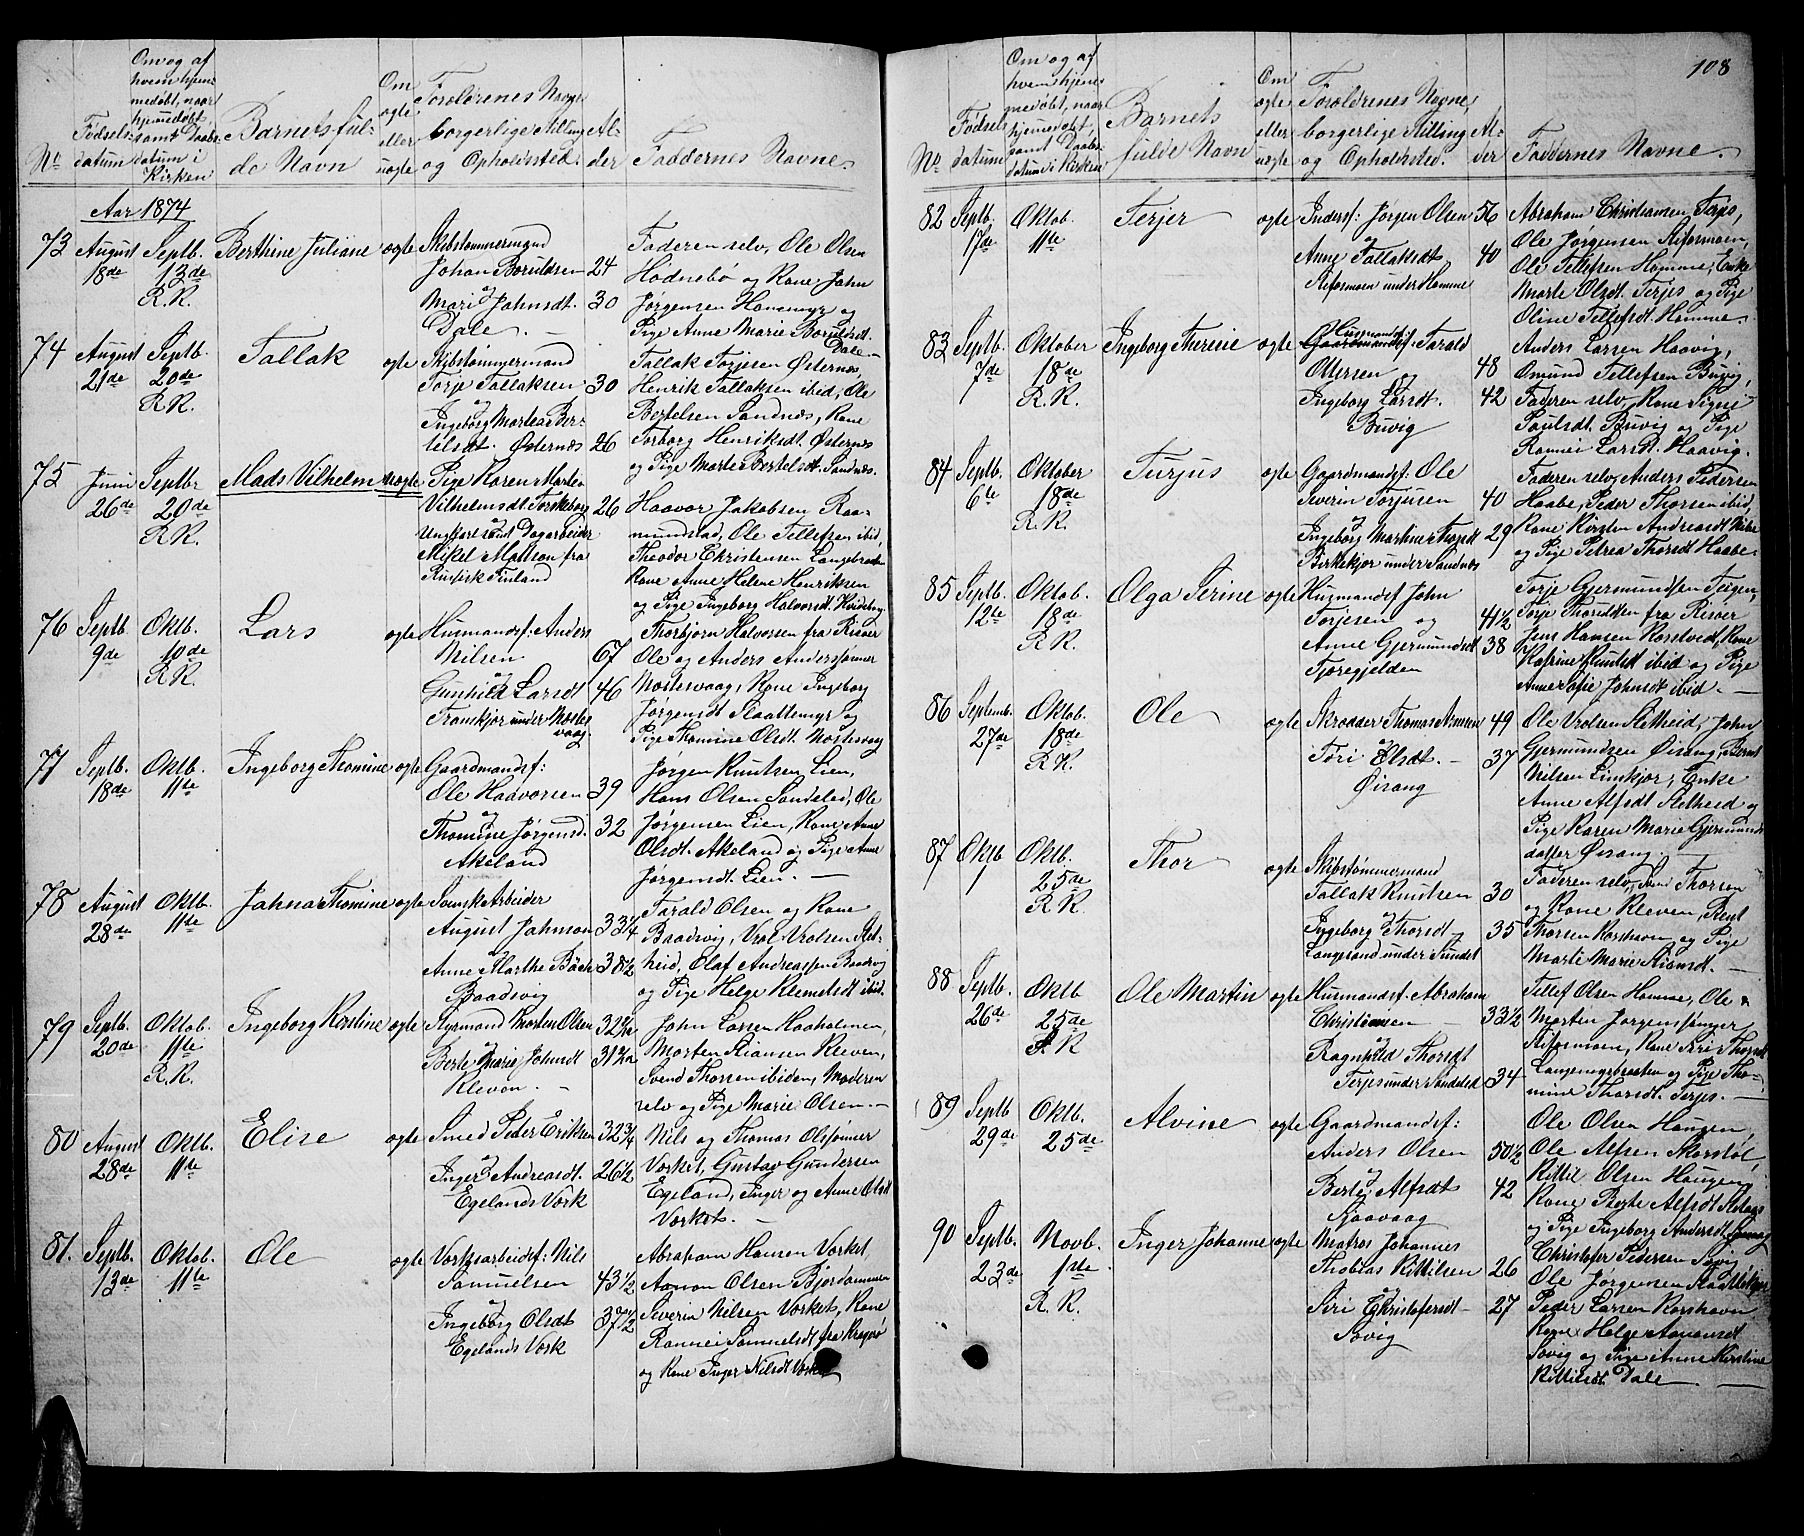 108
No
Fødsels-
datum
Om og af
hvem hjem-
medøbt, naar
hjemedøbt,
samt Daabs-
datum i
Kirken
Barnets ful-
de Navn
Om
ægte
eller
uægte
Forældrenes Navne
borgerlige Stilling
og Opholdsted.
Al-
der
Faddernes Navne.
Aar 1874
73
August
18de
Septb.
13de
R.K.
Berthine Juliane
ægte
Skibstømmermand
Johan Boruldsen 24
og
Mari Jahnsdt. 30
Dale. —
Faderen selv, Ole Olsen
Hødnebø og Kone, John
Jørgensen Hanemyr og
Pige Anne Marie Boruldsdt.
Dale —
74
August
21de
Septb.
20de
R.K.
Tallak
ægte
Skibstømmermand
Torje Tallaksen 30
og
Ingeborg Martea Ber-
telsdt. Østernæs 26
Tallak Torjesen Østernæs,
Henrik Tallaksen ibid, Ole
Bertelsen Sandnæs, Kone
Torborg Henriksdt. Østernæs
og Pige Marte Bertelsdt. Sandnæs.
75
Juni
26de
Septbr
20de
R.K.
Mads Vilhelm
uægte
Pige Karen Marten
Vilhelmsdt Torskeborg 26
og
Ungkarl samt Dagarbeider
Mikel Madson fra
Rusisk Finland
Haavor Jakobsen Raa-
mundstad, Ole Tellefsen ibid,
Theodor Ekristensen Langebraaten
Kone Anne Helene Henriksen
og Pige Ingeborg Halvorsdt. Hvideberg
76
Septb
9de
Oktb.
10de
R.K.
Lars
ægte
Husmandsf: Anders
Nilsen 67
og
Gunhild Larsdt 46
Transkjær under Mostes-
vaag.
Thorbjørn Halvorsen fra Risøer
Ole og Anders Anderssønner
Mostesvaag, Kone Ingeborg
Jørgensdt Slaattemyr og
Pige Thomine Olsdt. Mostesvaag
77
Septb.
18de
Oktb.
11te
Ingeborg Thomine
ægte
Gaardmandsf:
Ole Haavorsen 39
og
Thomine Jørgensd. 32
Akeland
Jørgen Knutsen Lien,
Hans Olsen Sandeled, Ole
Jørgensen Lien, Kone Anne
Olsdt. Akeland og Pige Anne
Jørgensdt. Lien. —
78
August
28de
Oktb.
11te
Jahna Thomine
ægte
Svensk Arbeider
August Jahnson 33¼
og
Anne Marthe Bäck 38½
Baadsvig
Tarald Olsen og Kone
Baadsvig, Vrol Vrolsen Slet-
heid, Olaf Andreassen Baadsvig
og Pige Helge Klemetsdt ibid.
79
Septb.
20de
Oktob.
11te
R.K.
Ingeborg Kirstine
ægte
Styrmand Morten Olsen
og
Berte Marie Johnsdt
Kleven. —
John Larsen Haaholmen,
Morten Stiansen Kleven,
Svend Thorsen ibiden, Moderen
selv og Pige Marie Olsen. —
80
August
28de
Oktb.
11te
Elise
ægte
Smed Peder Eriksen 32¾
og
Inger Andreasdt. 26½
Egelands Værk
Nils og Thomas Olssønner
Værket, Gustav Gundersen
Egeland, Inger og Anne Olsdt
Værket. —
81.
Septb.
13de
Oktob.
11te
Ole
ægte
Værksarbeidsf: Nils
Samuelsen 43½
og
Ingeborg Olsdt 37½
Egelands Værk
Abraham Hansen Værket,
Aanon Olsen Bjordammen
Severin Nilsen Værket, Kone
Rannei Samuelsdt fra Kragerø
og Kone Inger Nilsdt Værket
No
Fødsels
datum
Om og af
hvem hjem-
medøbt, naar
hjemedøbt,
samt Daabs-
datum i Kirken
Barnets
fulde Navn
Om
ægte
eller
uægte
Forældrenes Navne,
borgerlige Stilling
og Opholdsted.
Al-
der
Faddernes Navne.
82
Septb.
17de
Oktob.
11te
Terjer
ægte
Inderst: Jørgen Olsen 56
og
Anne Tallaksdt 40
Stifosmoen under Homme
Abraham Christiansen Terjes,
Ole Jørgensen Stifosmoen,
Ole Tellefsen Homme, Enke
Marte Olsdt. Terjes og Pige
Oline Tellefsdt Homme. —
83
Septb.
7de
Oktober
18de
R.K.
Ingeborg Therine
ægte
Husmandsf:
Gaardmandsf: Tarald
Ottersen og 48
Ingeborg Larsdt. 42
Buvig
Anders Larsen Haavig,
Omund Tellefsen Buvig,
Faderen selv, Kone Signe
Poulsdt. Buvig og Pige
Rannei Larsdt. Haavig.
84
Septb.
6te
Oktober
18de
R.K.
Turjus
ægte
Gaardmandsf: Ole
Severin Torjusen 40
og
Ingeborg Martine Thorsdt 29
Birkekjær under Sandnæs
Faderen selv, Anders Pedersen
Haabe, Peder Thorsen ibid,
Kone Kirsten Andreasdt Vibe
og Pige Petrea Thorsdt Haabe.
85
Septb.
12te
Oktob.
18de
R.K.
Olga Serine
ægte
Husmandsf John
Torjesen og 41½
Anne Gjermundsdt 38
Fjæregjelden
Torje Gjermundsen Teigen,
Torje Thoruldsen fra Risøer
Jens Hansen Rørstvedt, Kone
Katrine Knutsdt ibid og Pige
Anne Sofie Johnsdt ibid. —
86
Septemb.
27de
Oktob.
18de
R.K.
Ole
ægte
Skrædder Thomas Asmsen 49
og
Tori Olsdt. — 37
Øisang
Ole Vrolsen Sletheid, John
Gjermundsen Øisang, Bernt
Nilsen Limkjær, Enke
Anne Alfsdt Sletheid og
Pige Karen Marie Gjermunds-
datter Øisang. —
87
Oktb
1
Oktb.
25de
R.K.
Thor
ægte
Skibstømmermand
Tallak Knutsen 30
og
Ingeborg Thorsdt 35
Langsand under Sundet
Faderen selv, Søren Thorsen
og Kone Kleven, Bent
Thorsen Korshavn og Pige
Marte Marie Stiansdt. —
88
Septb.
26de
Oktb
25de
R.K
Ole Martin
ægte
Husmandsf. Abraham
Christiansen 33½
og
Ragnhild Thorsdt
Terjes under Sandeled 34
Tellef Olsen Homme, Ole &
Morten Jørgenssønner
Stifosmoen, Kone Siri Thorsdt
Langemyrbraaten og Pige Tho-
mine Thorsdt. Terjes. —
89
Septb
29de
Oktb.
25de
Alvine
ægte
Gaardmandsf:
Anders Olsen 50½
og
Berte Alfsdt 42
Sjaavaag
Ole Olsen Haugen,
Ole Alfsen Skarstøl,
Kittil Olsen Haugen,
Kone Berte Alfsdt
og Pige Ingeborg Andersdt
90
Septb.
23de
Novb.
1ste
R.K.
Inger Johanne
ægte
Matros Johannes
Thobias Kittilsen 26
og
Siri Christofersdt 27
Søvig
Christofer Pedersen Søvig
Ole Jørgensen
Peder Larsen Korshavn
Kone Helge Aanonsdt
Søvig og Pige Anne Kirstine
Kittilsdt Dale —